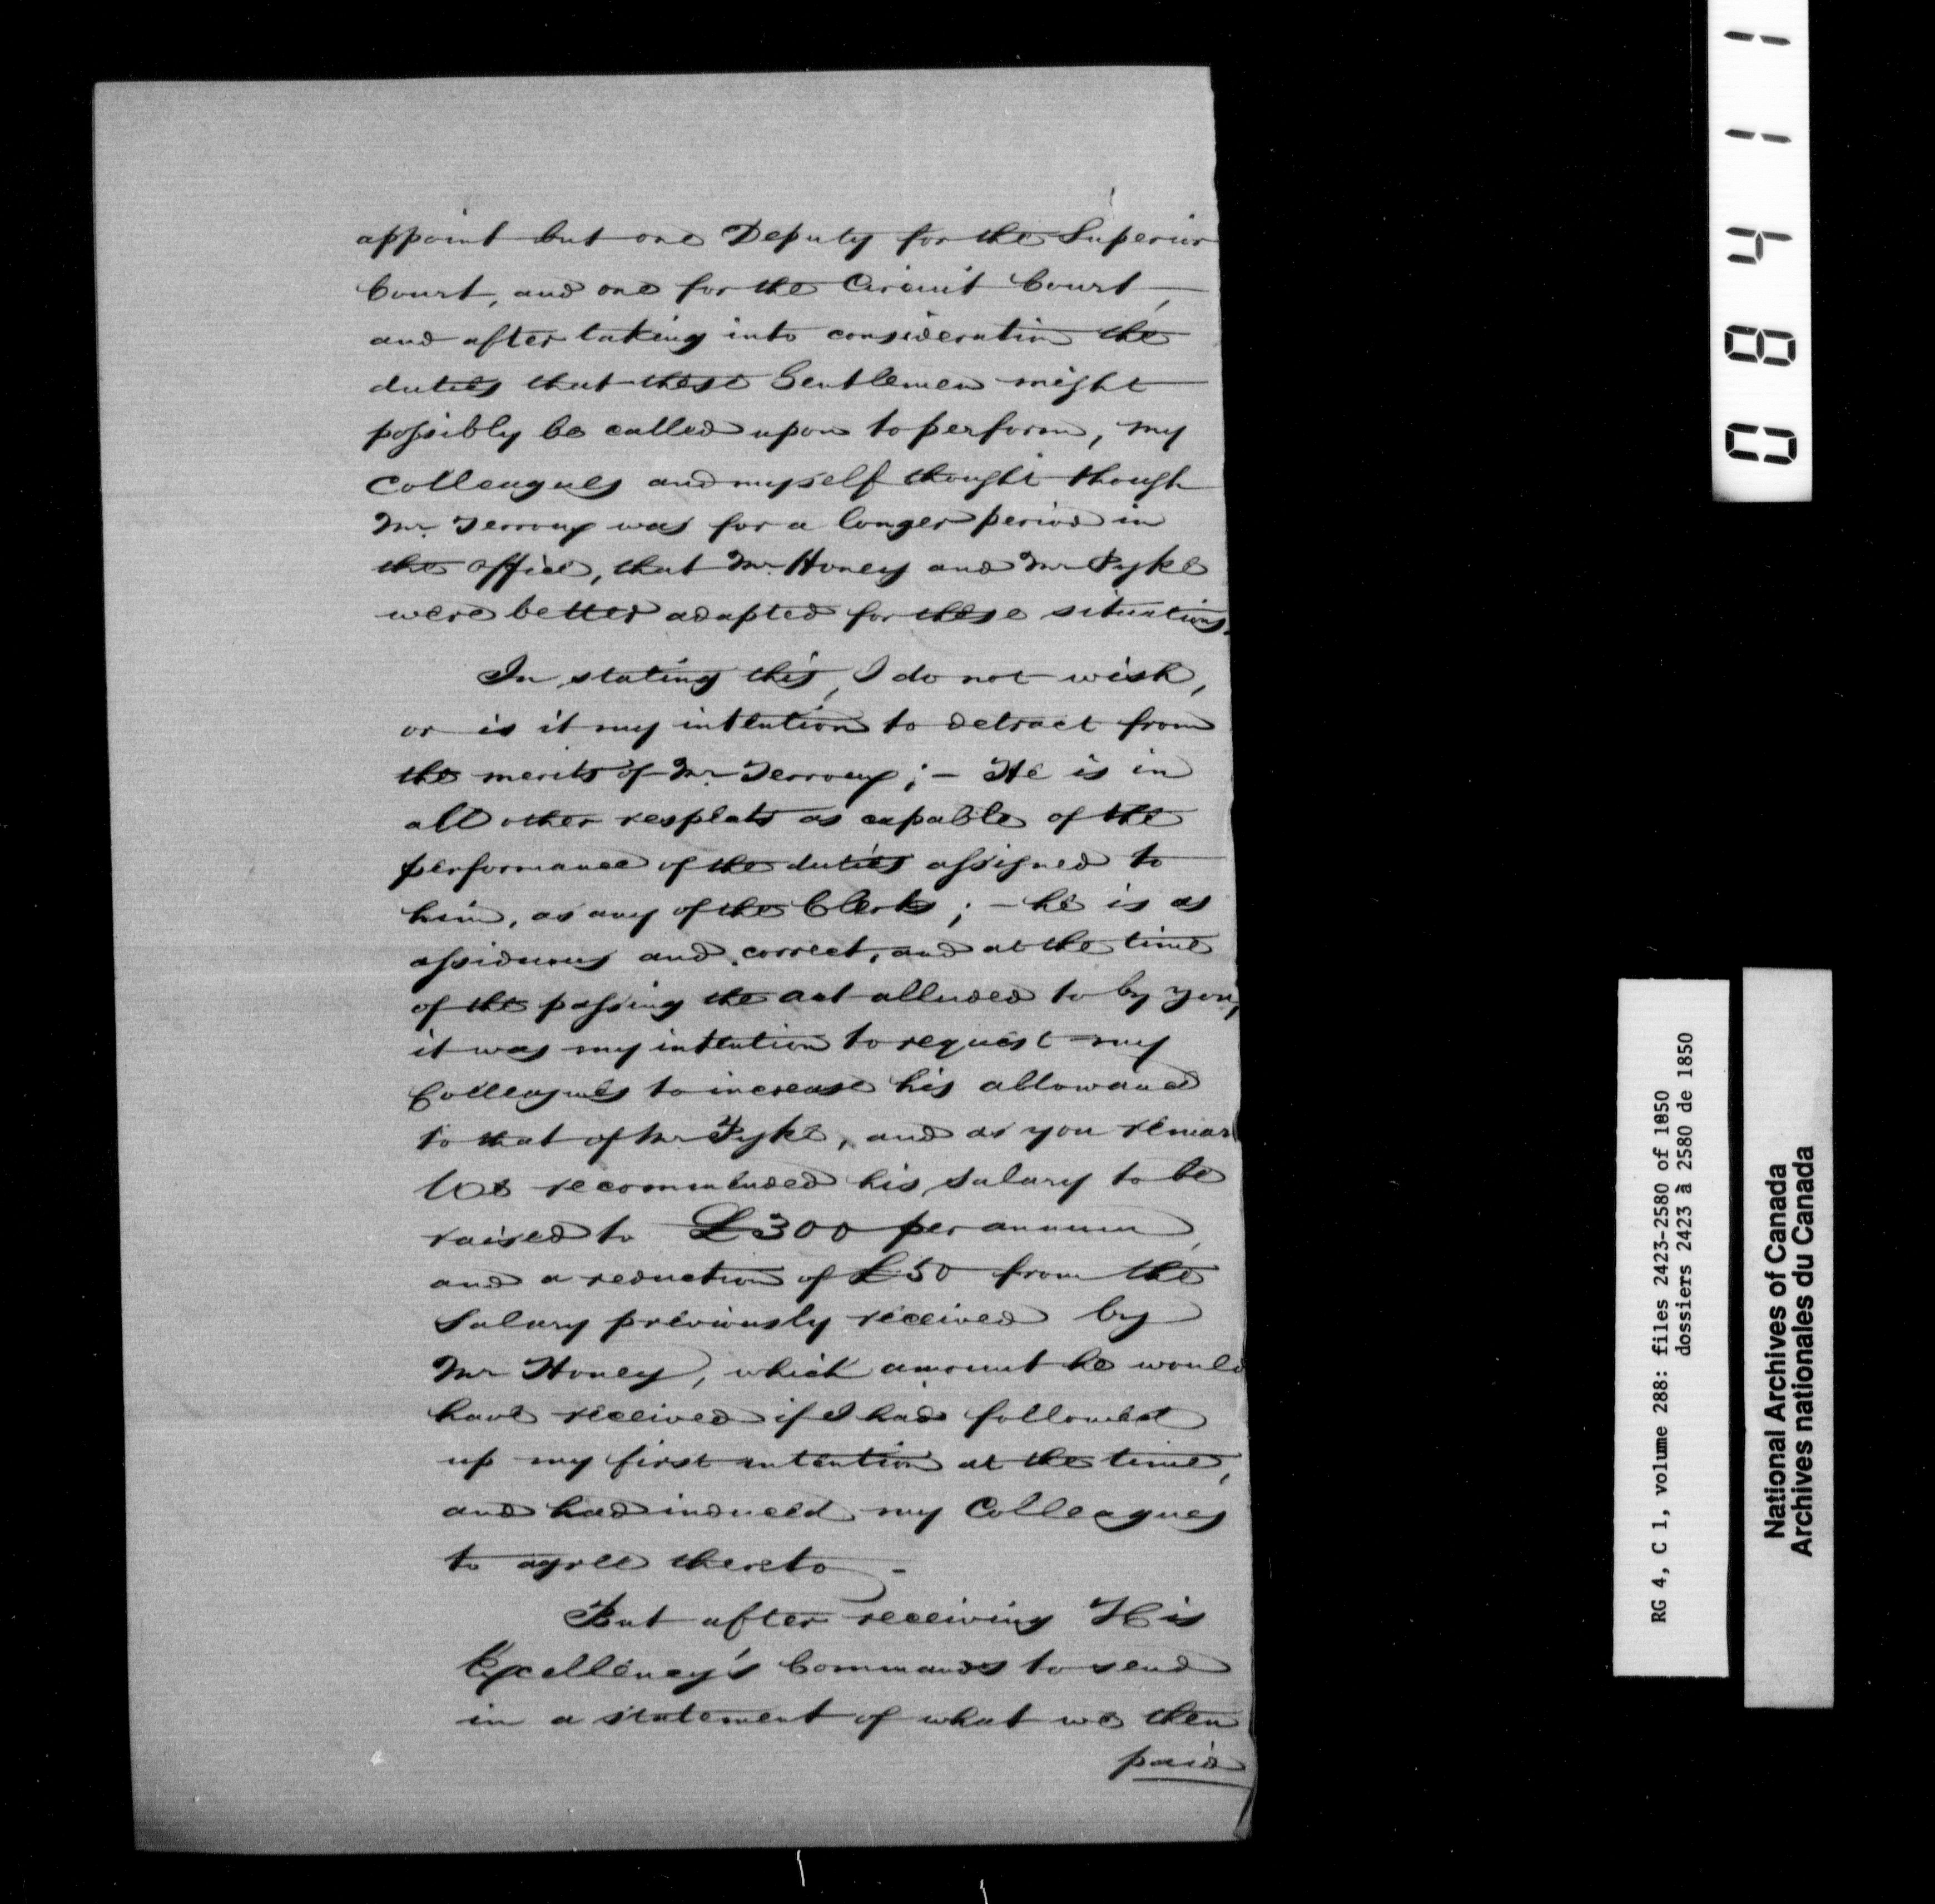 appoint but one Deputy for the Superior
Court, and one for the Circuit Court,
and after taking into consideration the
duties that these Gentlemen might
possibly be called upon to perform, my
Colleagues and myself thought though
Mr. Terroux was for a longer period in
the office, that Mr. Honey and Mr Pyke
were better adapted for these situations.
In stating this, I do not wish,
or is it my intention to detract from
the merits of Mr. Terroux; – He is in
all other respects as capable of the
performance of the duties assigned to
him, as any of the Clerks; – he is as
assiduous and correct, and at the time
of the passing the act alluded to by you,
it was my intention to request my
Colleagues to increase his allowance
to that of Mr Pyke, and as you remark
We recommended his salary to be
raised to £300 per annum,
and a reduction of £50 from the
Salary previously received by
Mr Honey, which amount he would
have received if I had followed
up my first intention at the time,
and had induced my Colleagues
to agree thereto –
But after receiving His
Excellency's Commands to send
in a statement of what we then
paid
08411
RG 4, C 1, volume 288: files 2423-2580 of 1850
dossiers 2423 à 2580 de 1850
National Archives of Canada
Archives nationales du Canada